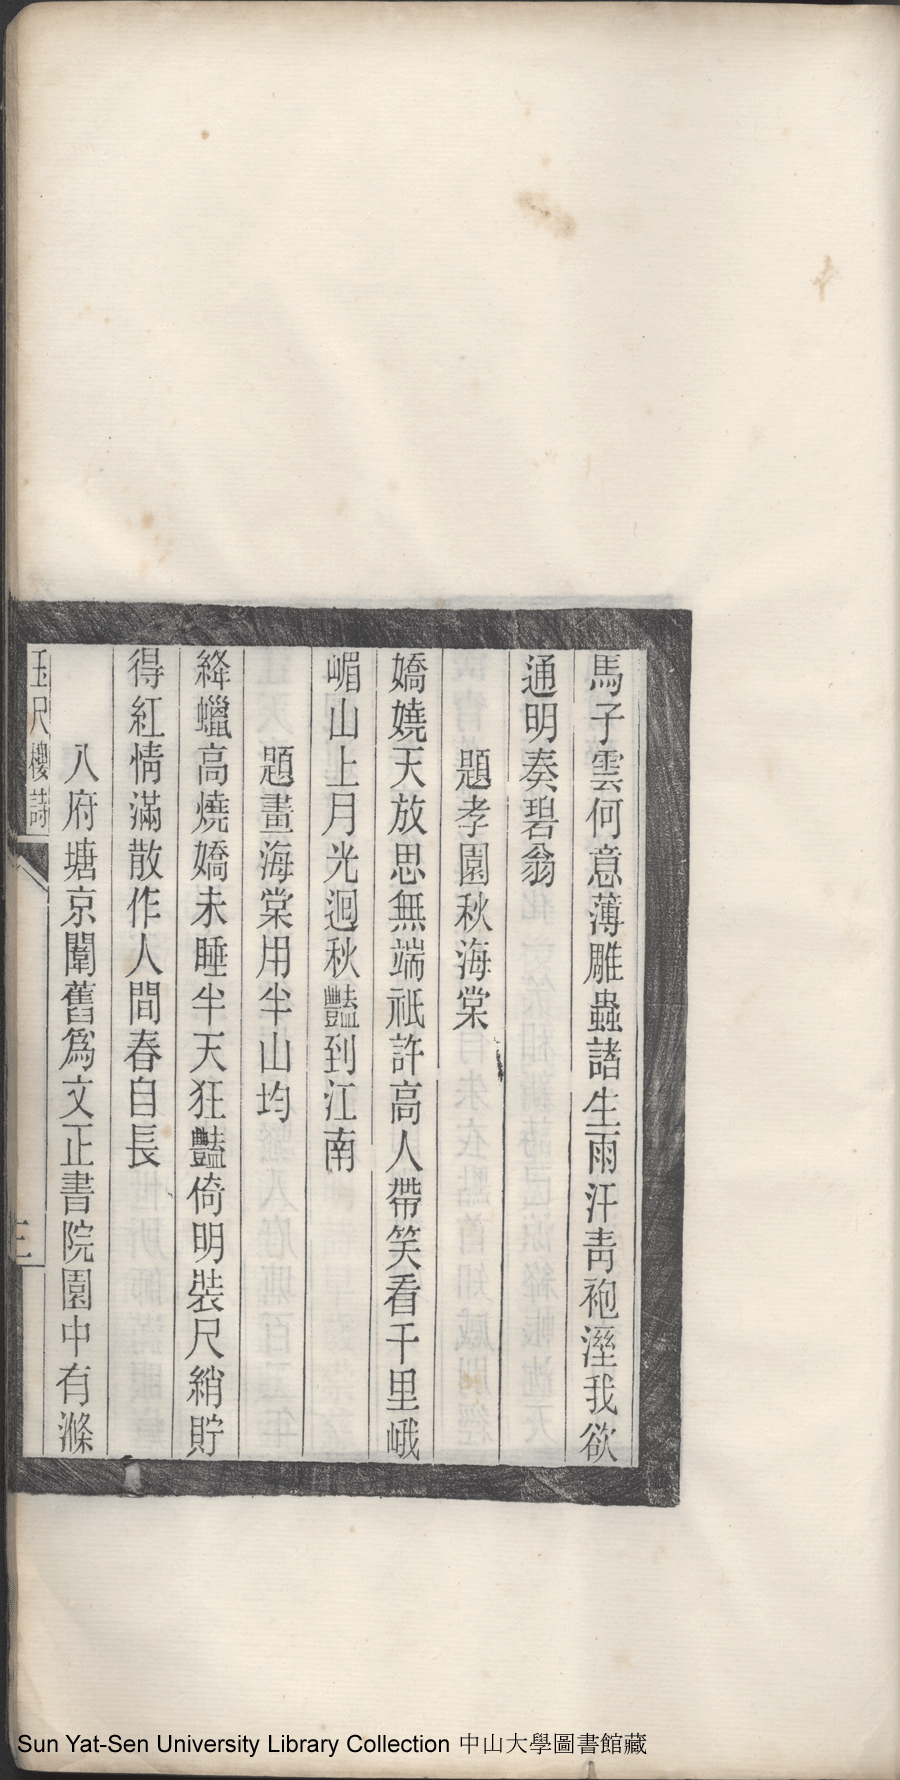 馬子雲何意薄雕蟲諸生雨汗青袍溼我欲
通明奏碧翁
題孝園秋海棠
嬌嬈天放思無端祇許高人帶笑看千里峨
嵋山上月光迴秋豔到江南
題畫海棠用半山均
絳蠟高燒嬌未睡半天狂豔倚明裝尺綃貯
得紅情滿散作人間春自長
八府塘京闈舊爲文正書院園中有滌
玉尺樓詩
三
Sun Yat-Sen University Library Collection 中山大學圖書館藏